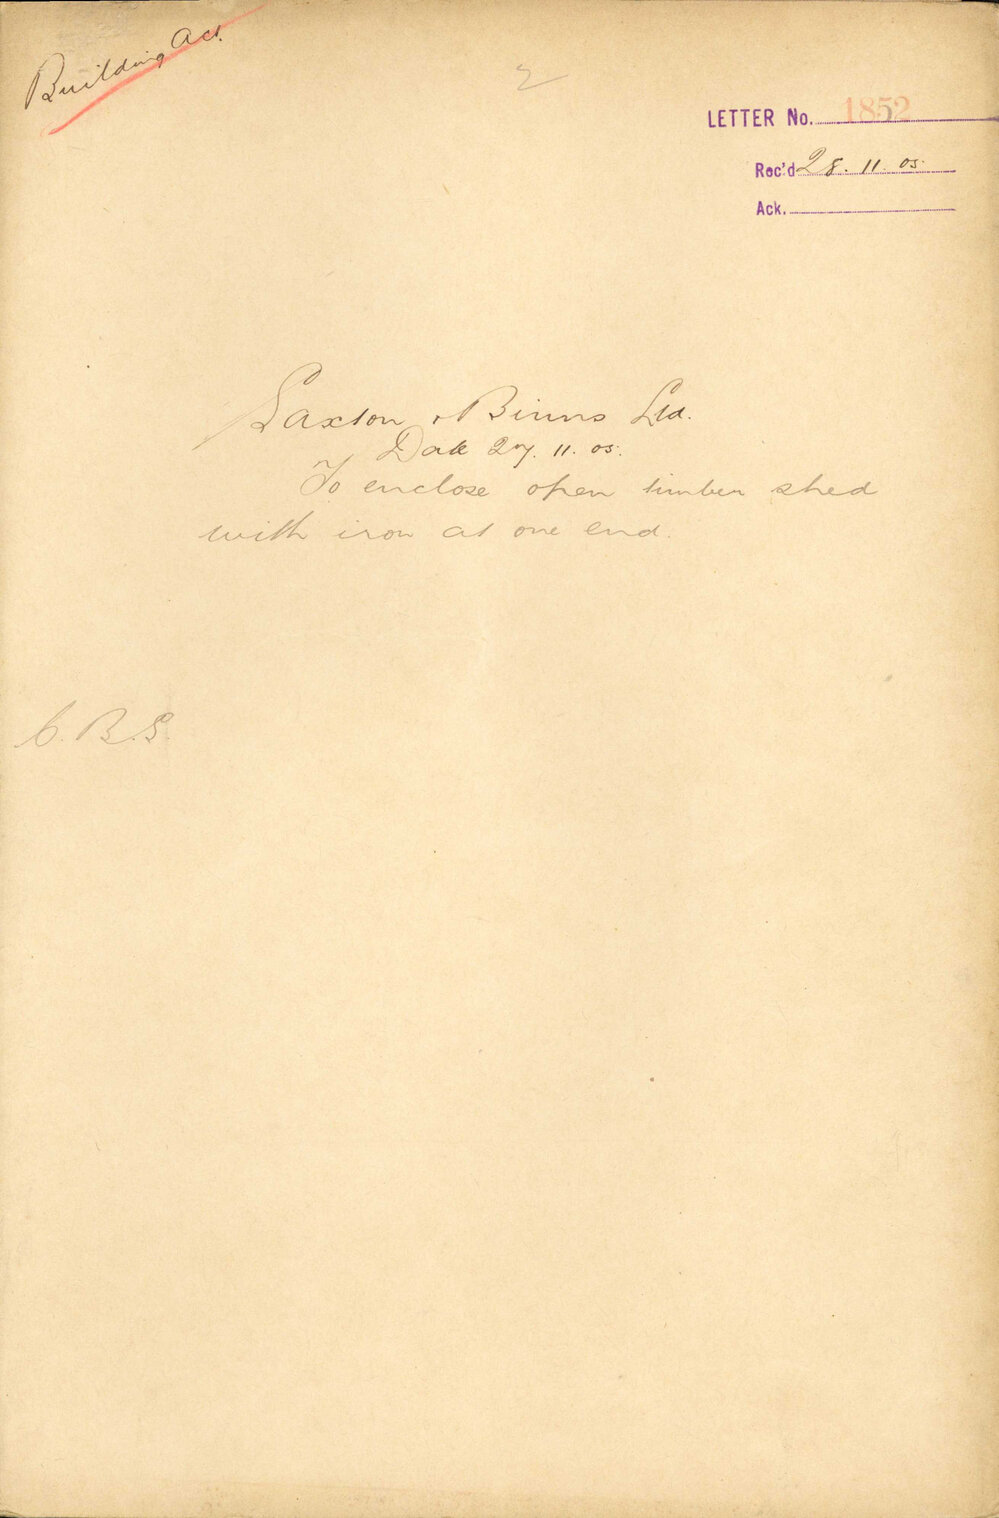 Building Act.
2
LETTER No. 1852
Rec'd 28. 11. 05.
Ack.
Saxton & Binns Ltd.
Date 27. 11. 05.
To enclose open timber shed
with iron at one end.
C.B.S.